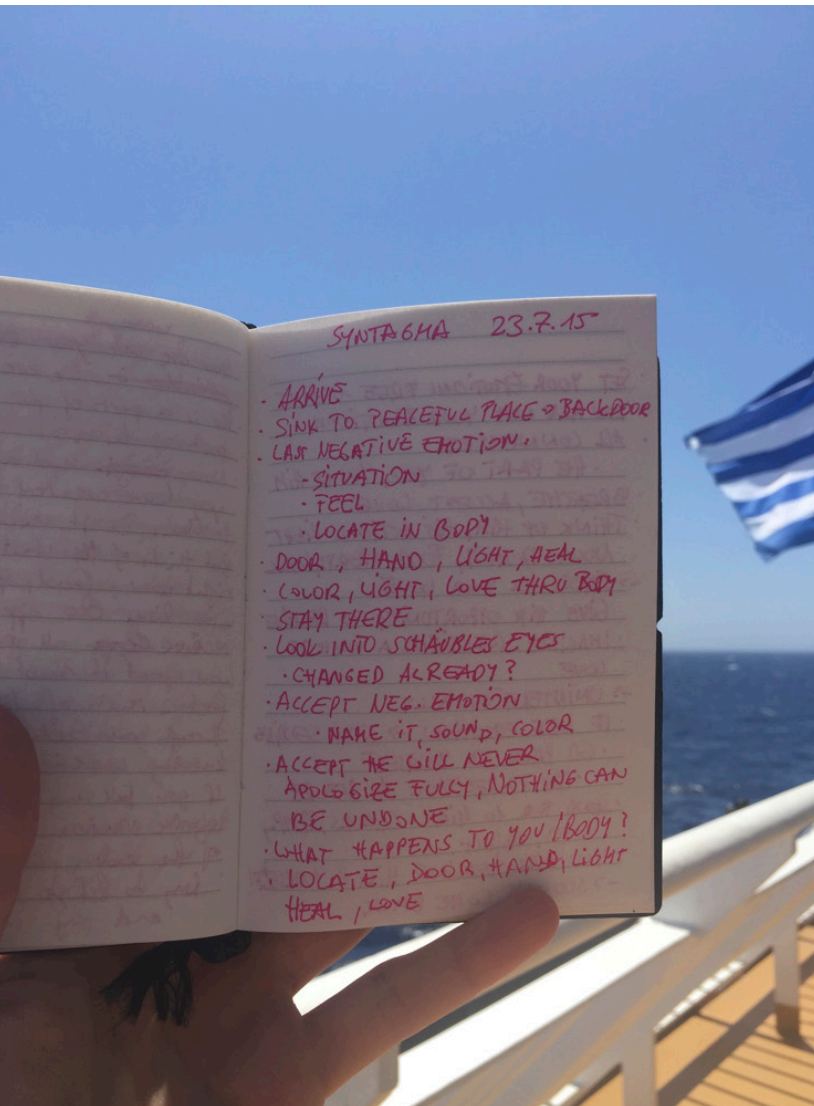 SYNTAGMA 23.7.15
· ARRIVE
· SINK TO PEACEFUL PLACE → BACKDOOR
· LAST NEGATIVE EMOTION.
- SITUATION
· FEEL
· LOCATE IN BODY
· DOOR, HAND, LIGHT, HEAL
· COLOR, LIGHT, LOVE THRU BODY
· STAY THERE
· LOOK INTO SCHÄUBLES EYES
· CHANGED ALREADY?
· ACCEPT NEG. EMOTION
· NAME IT, SOUND, COLOR
· ACCEPT HE WILL NEVER
APOLOGIZE FULLY, NOTHING CAN
BE UNDONE
· WHAT HAPPENS TO YOU / BODY?
· LOCATE, DOOR, HAND, LIGHT
HEAL, LOVE